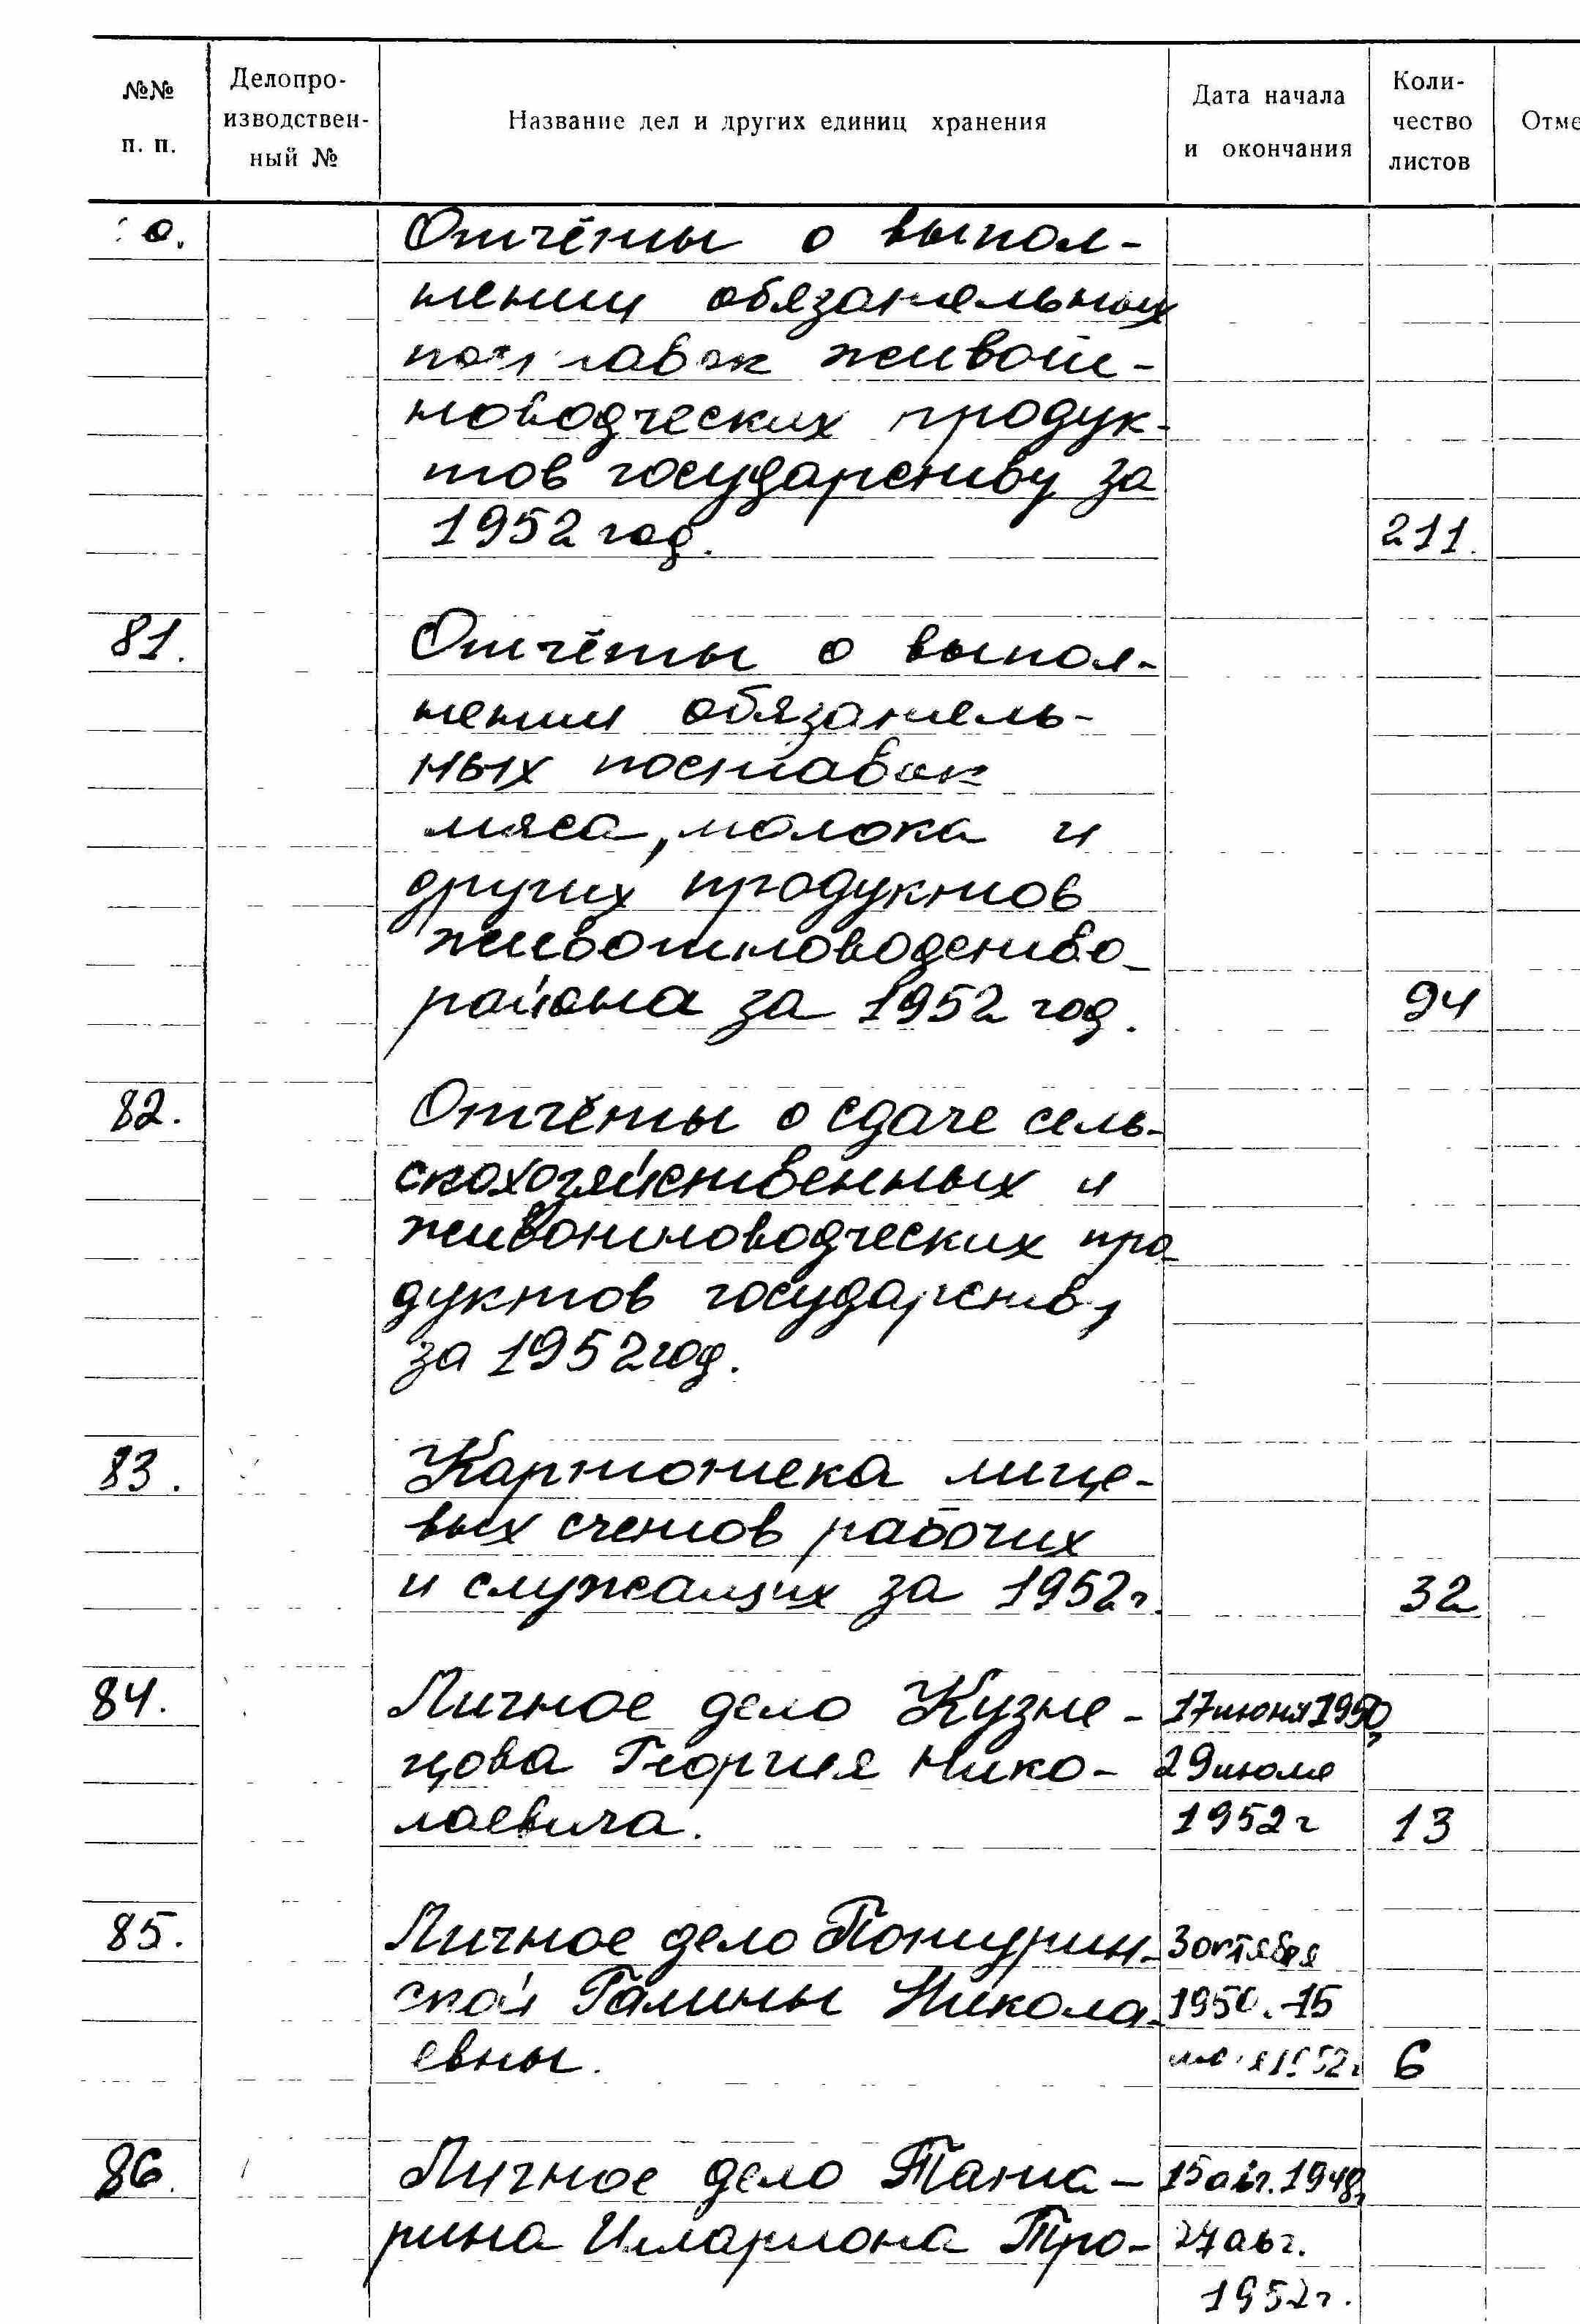 №№ п. п.
Делопро-
изводствен-
ный №
Название дел и других единиц хранения
Дата начала
и окончания
Коли-
чество
листов
Отме
0.
Отчёты о выпол-
нении обязательных
поставок живот-
новодческих продук-
тов государству за
1952 год. 211.
81. Отчёты о выпол-
нении обязатель-
ных поставок
мяса, молока и
других продуктов
животноводство
района за 1952 год. 94
82. Отчёты о сдаче сель-
скохозяйственных и
животноводческих про-
дуктов государству
за 1952 год.
83. Картотека лице-
вых счетов рабочих
и служащих за 1952 г. 32
84. Личное дело Кузне- 17 июня 1950
цова Георгия Нико- 29 июля
лаевича. 1952 г 13
85. Личное дело 3 октября
ской Галины Никола- 1950.-15
евны. 1952 г 6
86. Личное дело Тата- 15 авг. 1948
рина Илариона Тро- 27 авг.
1952 г.